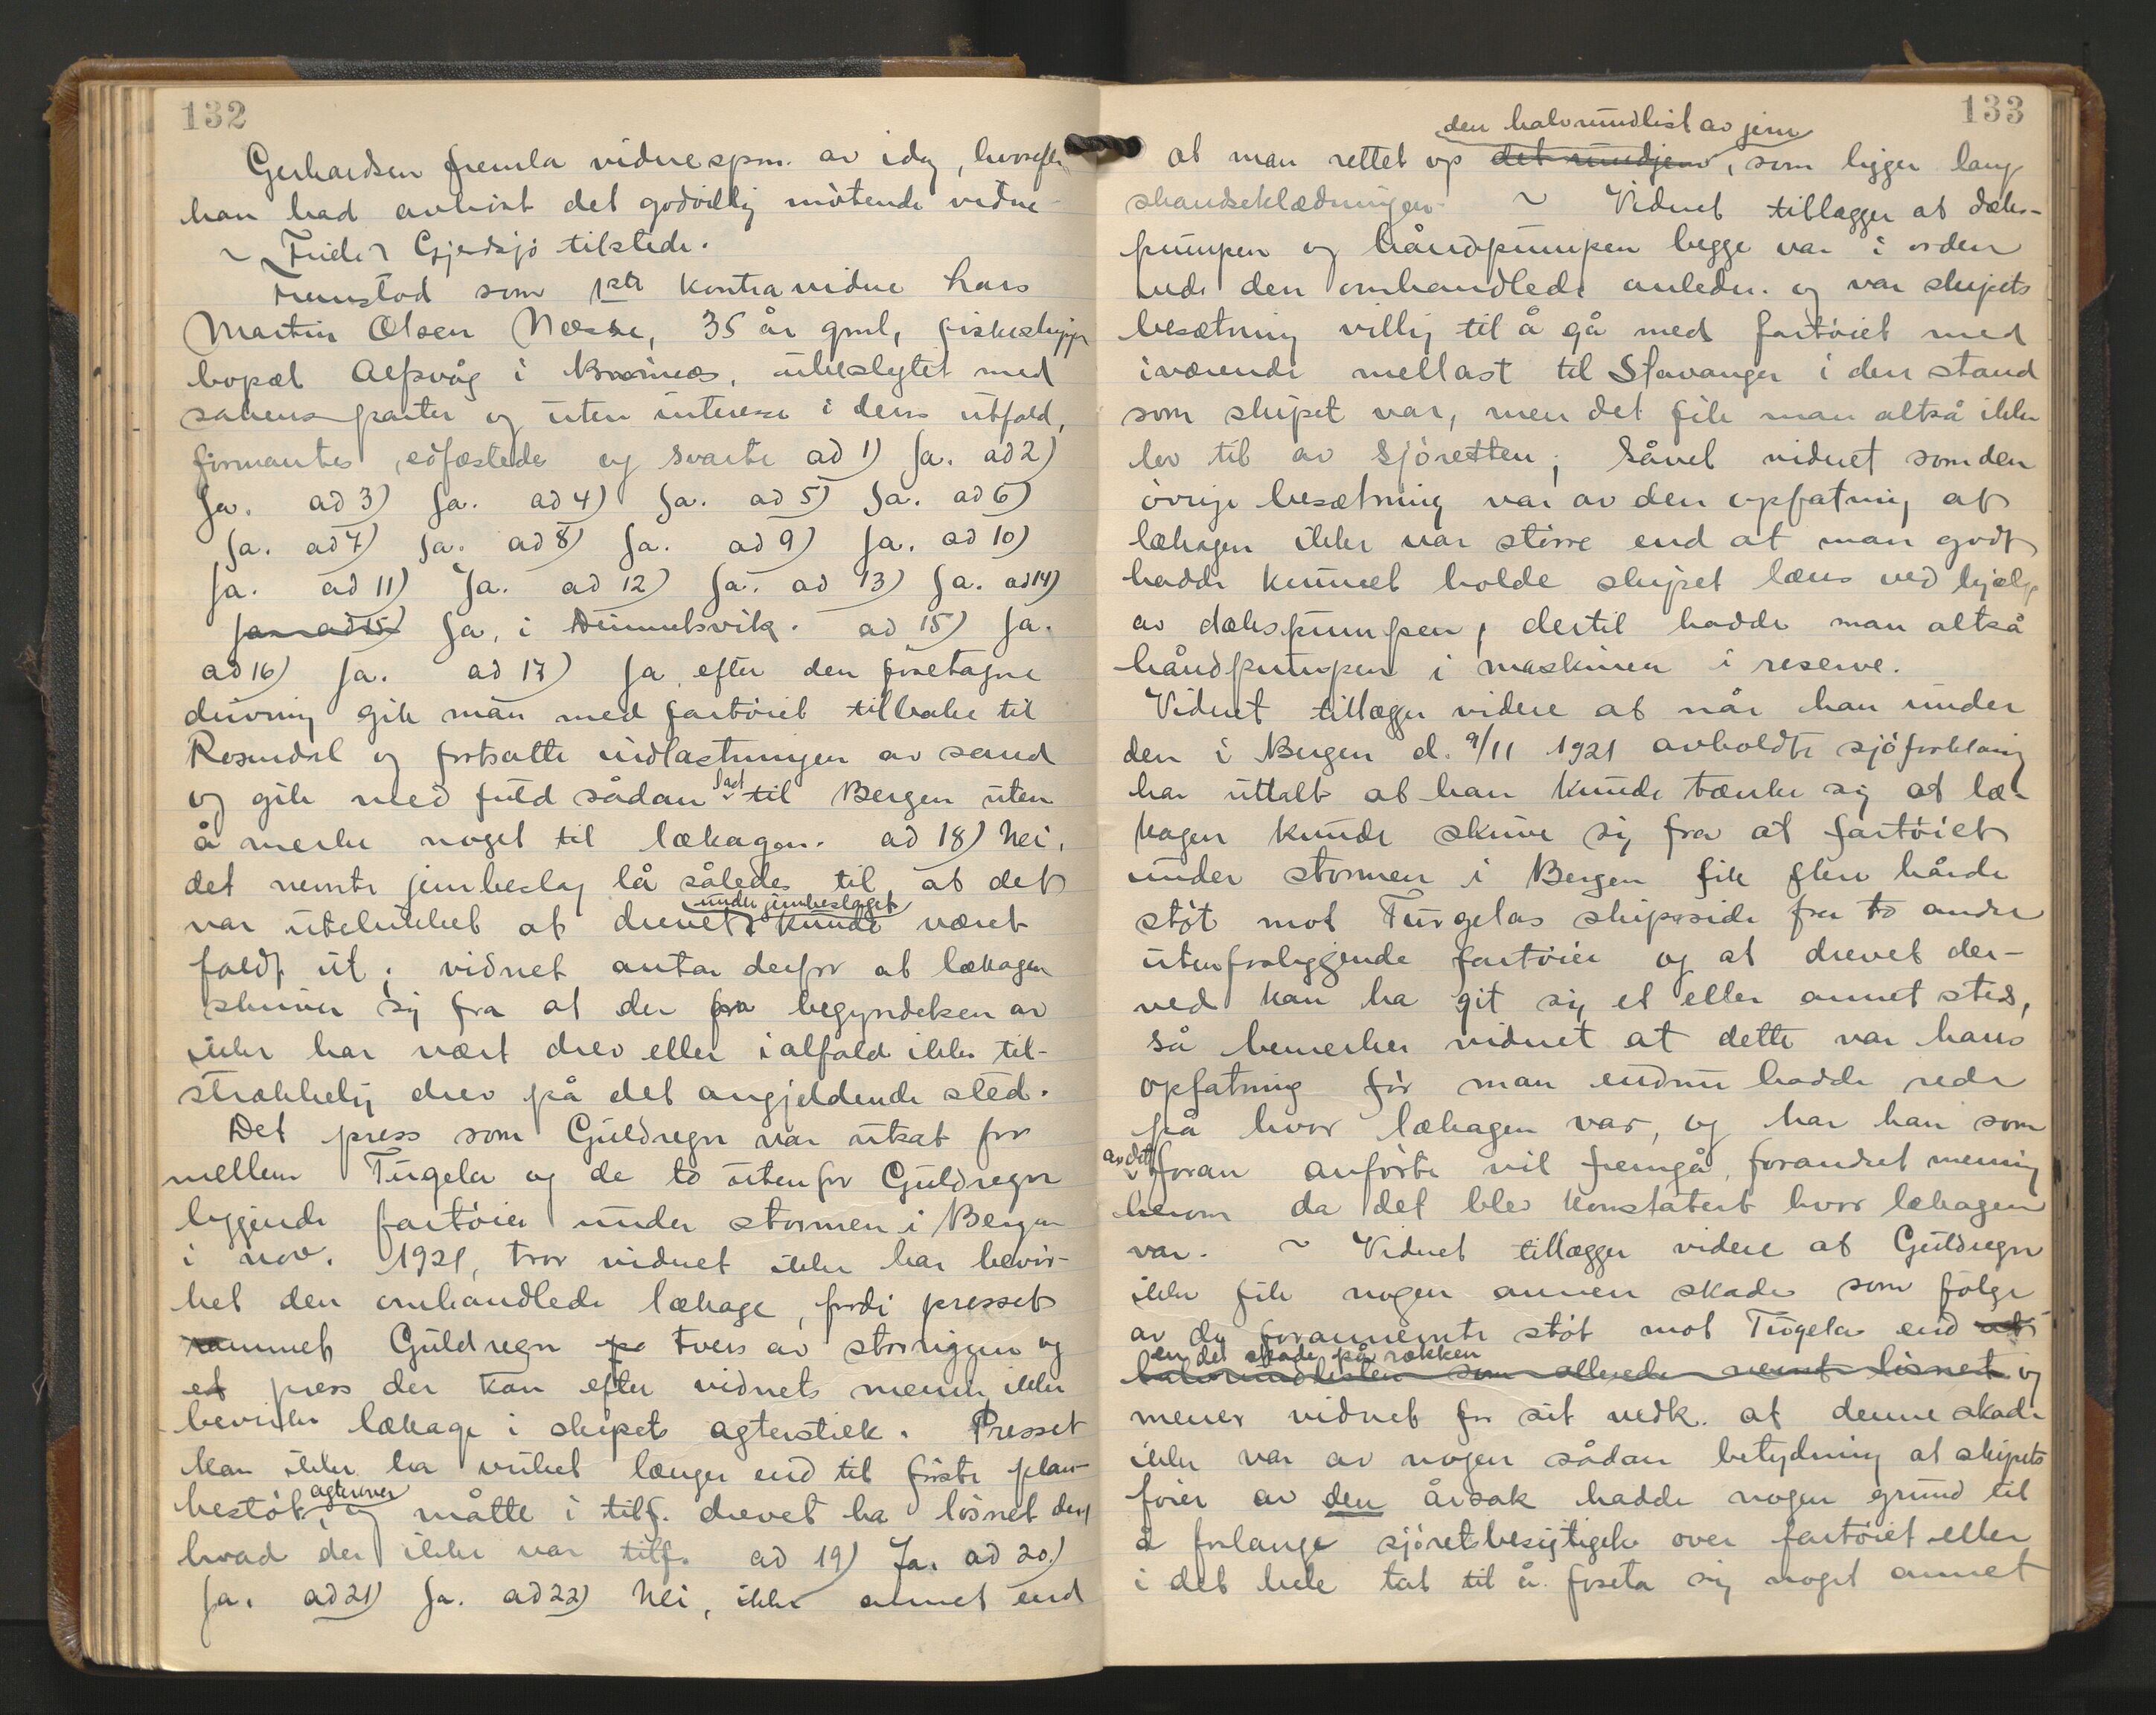 132
Gerhardsen fremla vidnespm. av idag, hvorefter
han bad avhørt det godvillig møtende vidne
~ Gjerdsjø tilstede.
Fremstod som 1ste kontravidne Lars
Martin Olsen Næsse, 35 år gml, fiskeskipper
bopæl Alpvåg i Bremnæs, ubeslegtet med
sakens parter og uten interesse i dens utfald,
formantes, edfæstedes og svarte ad 1) Ja. ad 2)
Ja. ad 3) Ja. ad 4) Ja. ad 5) Ja. ad 6)
Ja. ad 7) Ja. ad 8) Ja. ad 9) Ja. ad 10)
Ja. ad 11) Ja. ad 12) Ja. ad 13) Ja. ad 14)
Ja. ad 15) Ja, i Dimmelsvik. ad 15) Ja.
ad 16) Ja. ad 17) Ja, efter den foretagne
drivning gik man med fartøiet tilbake til
Rosendal og fortsatte indlastningen av sand
og gik med fuld sådan last til Bergen uten
å merke noget til lækagen. ad 18) Nei,
det nevnte jernbeslag lå således til, at det
under jernbeslaget
var utelukket at drevet kunde været
faldt ut; vidnet antar derfor at lækagen
skriver sig fra at der fra begyndelsen av
ikke har vært drev eller ialfald ikke til-
strækkelig drev på det angjeldende sted.
Det press som Guldregn var utsat for
mellem Tugela og de to utenfor Guldregn
liggende fartøier under stormen i Bergen
i nov. 1921, tror vidnet ikke har bevir-
ket den omhandlede lækage, fordi presset
rammet Guldregn på tvers av storriggen og
et press der kan efter vidnets mening ikke
bevirke lækage i skipets agterstick. Presset
kan ikke ha virket længer end til første plan-
agterover
kestøt, og måtte i tilf. drevet ha løsnet der,
hvad der ikke var tilf. ad 19) Ja. ad 20)
Ja. ad 21) Ja. ad 22) Nei, ikke annet end
133
den halvrundlist av jern
at man rettet op det rundjern, som ligger langs
skandseklædningen. ~ Vidnet tillægger at dæks-
pumpen og håndpumpen begge var i orden
ved den omhandlede anledn. og var skipets
besætning villig til å gå med fartøiet med
iværende mellast til Stavanger i den stand
som skipet var, men det fik man altså ikke
lov til av Sjøretten; Såvel vidnet som den
øvrige besætning var av den opfatning at
lækagen ikke var større end at man godt
hadde kunnet holde skipet læns ved hjælp
av dækspumpen, dertil hadde man altså
håndpumpen i maskinen i reserve.
Vidnet tillægger videre at når han under
den i Bergen d. 9/11 1921 avholdte sjøforklaring
har uttalt at han kunde tænke sig at læ-
kagen kunde skrive sig fra at fartøiet
under stormen i Bergen fik flere hårde
støt mot Tugelas skipsside fra to andre
utenforliggende fartøier og at drevet der-
ved kan ha git sig et eller annet sted,
så bemerker vidnet at dette var hans
opfatning før man endnu hadde rede
på hvor lækagen var, og har han som
av det foran anførte vil fremgå, forandret mening
herom da det blev konstatert hvor lækagen
var. ~ Vidnet tillægger videre at Guldregn
ikke fik nogen annen skade som følge
av de forannevnte støt mot Tugela end at
en del skade på rækken
halvrundlisten som allerede nevnt løsnet og
mener vidnet for sit vedk. at denne skade
ikke var av nogen sådan betydning at skipets
fører av den årsak hadde nogen grund til
å forlange sjøretsbesigtigelse over fartøiet eller
i det hele tat til å foreta sig noget annet